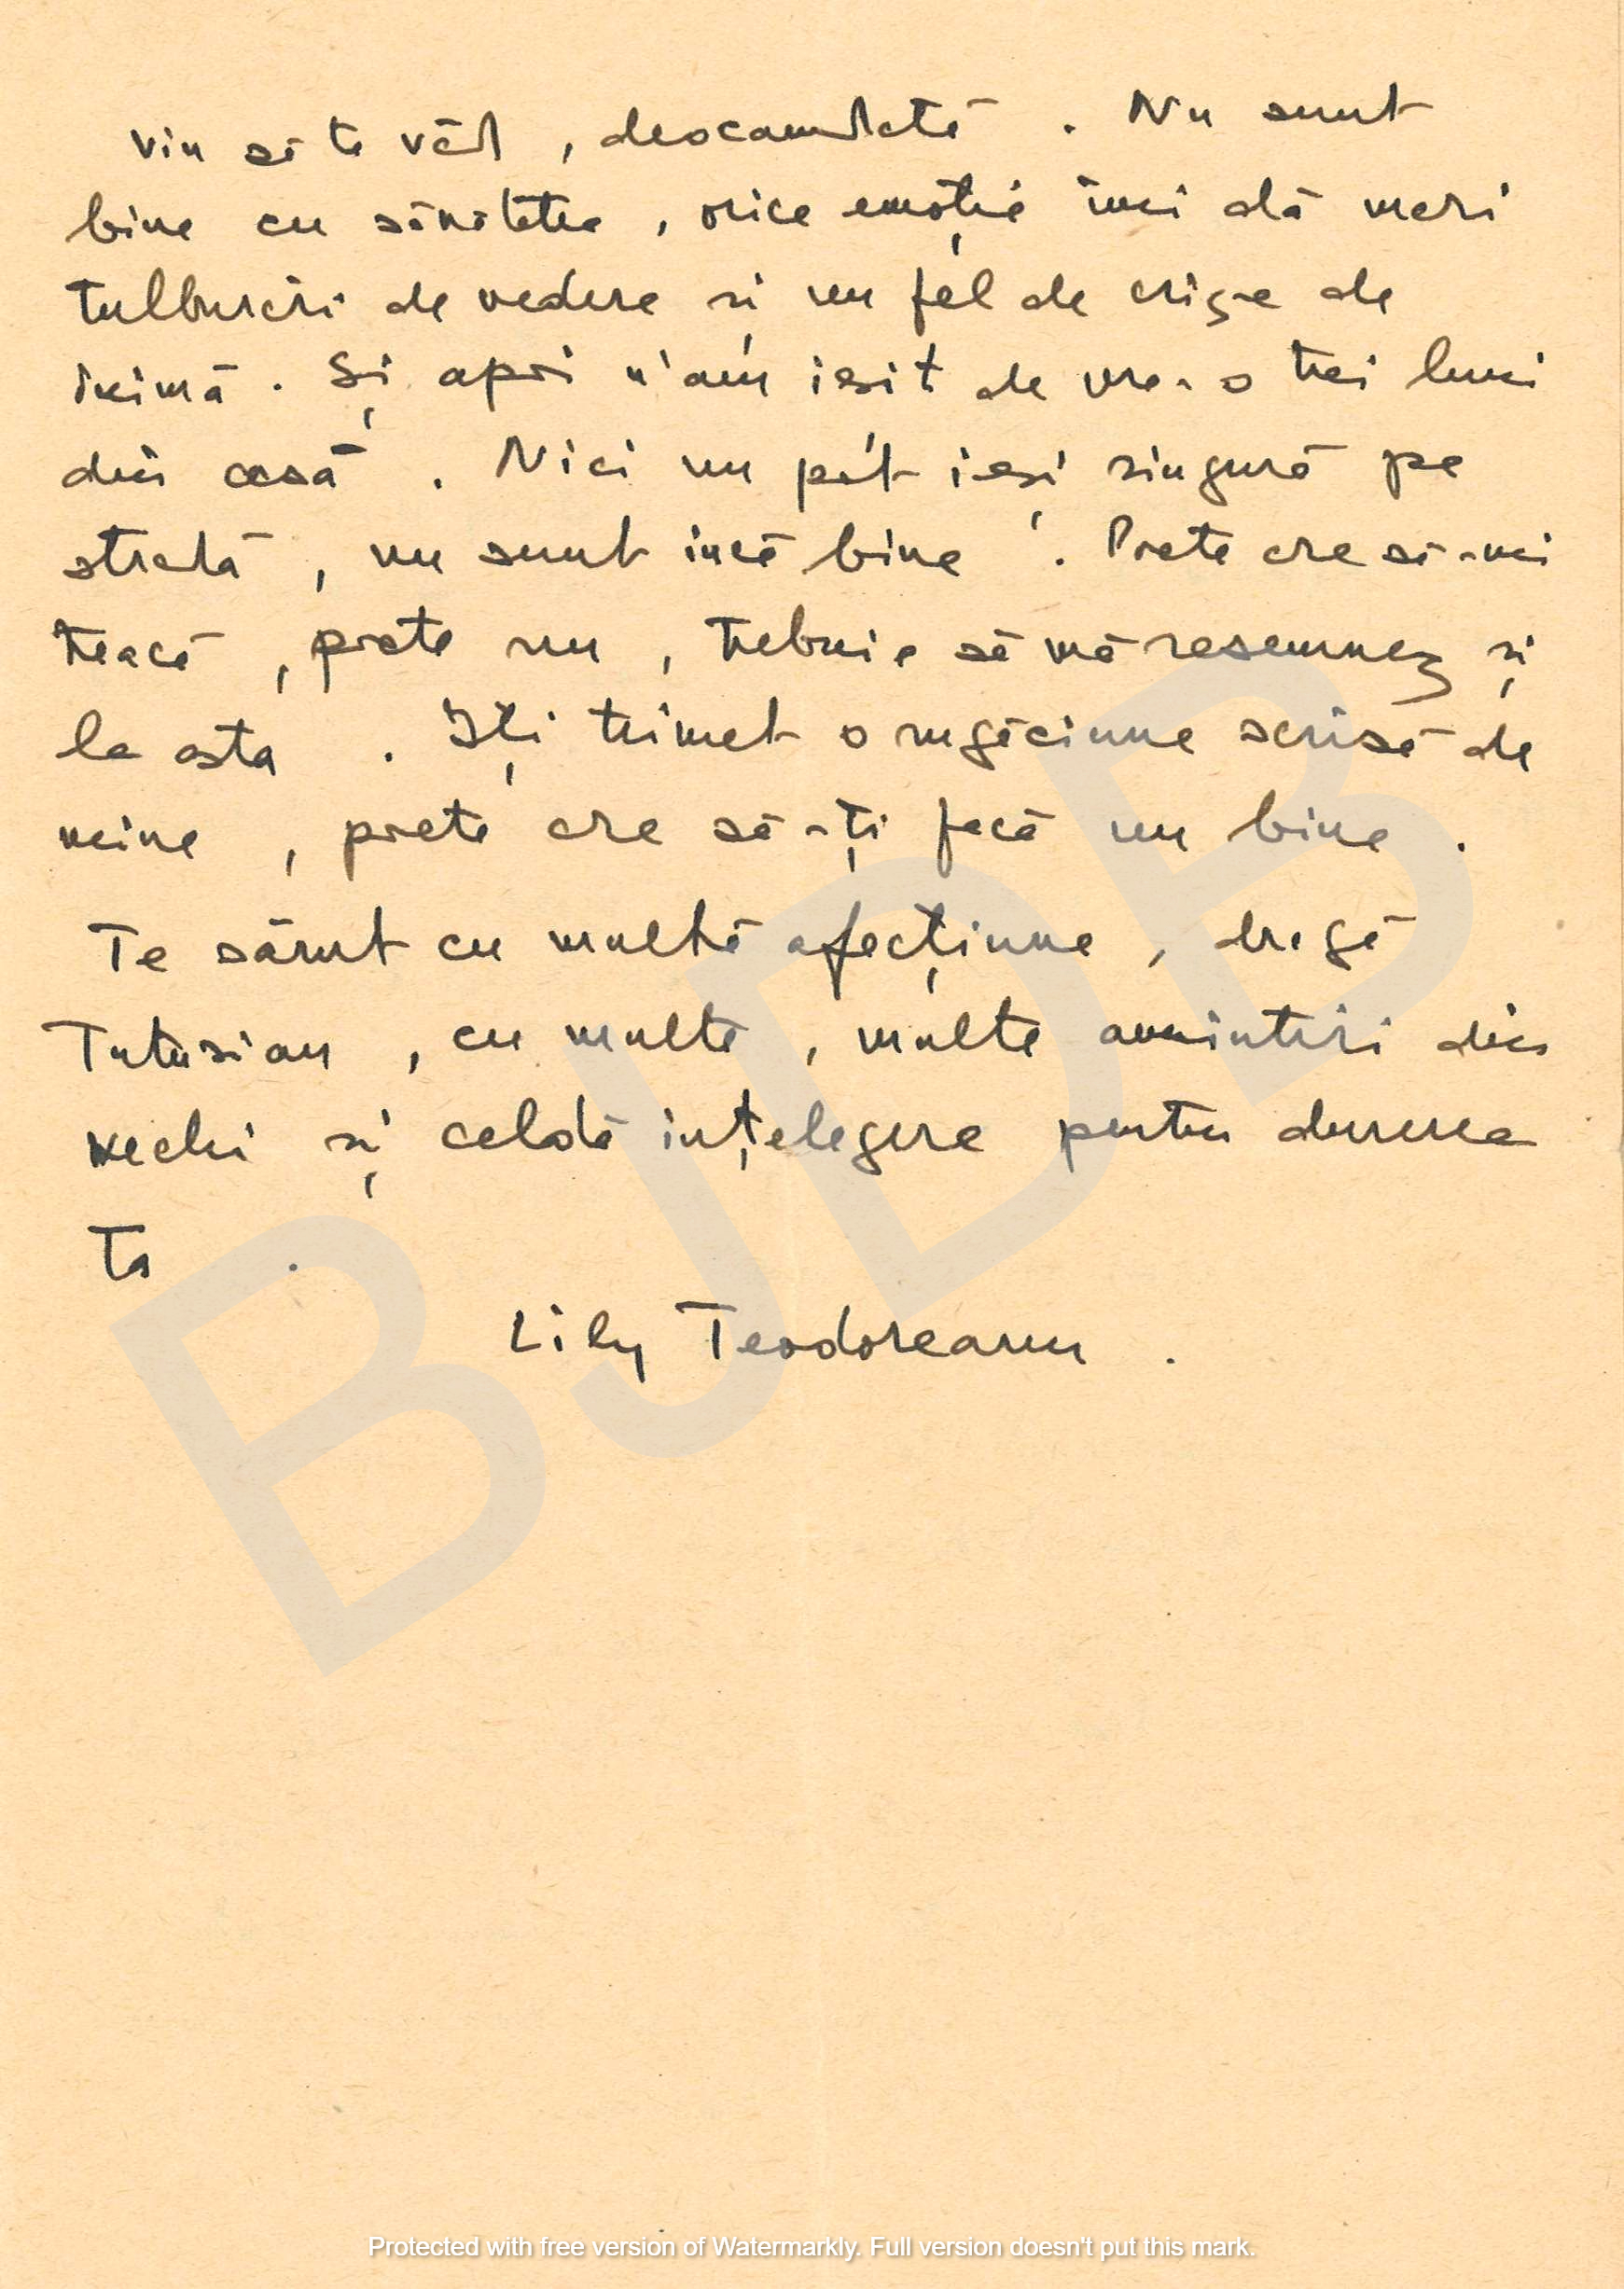 vin să te văd, deocamdată. Nu sunt
bine cu sănătatea, orice emoție îmi dă mari
tulburări de vedere și un fel de crize de
inimă. Și apoi n'am ieșit de vre-o trei luni
din casă. Nici nu pot ieși singură pe
stradă, nu sunt încă bine. Poate are să-mi
treacă, poate nu, trebuie să mă resemnez și
la asta. Iți trimet o rugăciune scrisă de
mine, poate are să-ți facă un bine.
Te sărut cu multă afecțiune, dragă
cu multe, multe amintiri din
vechi și caldă înțelegere pentru durerea
ta.
Lily Teodoreanu.
BJDB
Protected with free version of Watermarkly. Full version doesn't put this mark.